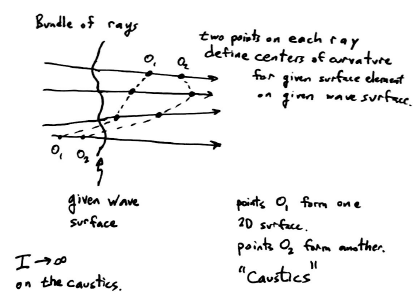 Bundle of rays
two points on each ray
define centers of curvature
for given surface element
on given wave surface.
O₁ O₂
O₁ O₂
given wave
surface
points O₁ form one
2D surface.
points O₂ form another.
"Caustics"
I → ∞
on the caustics.